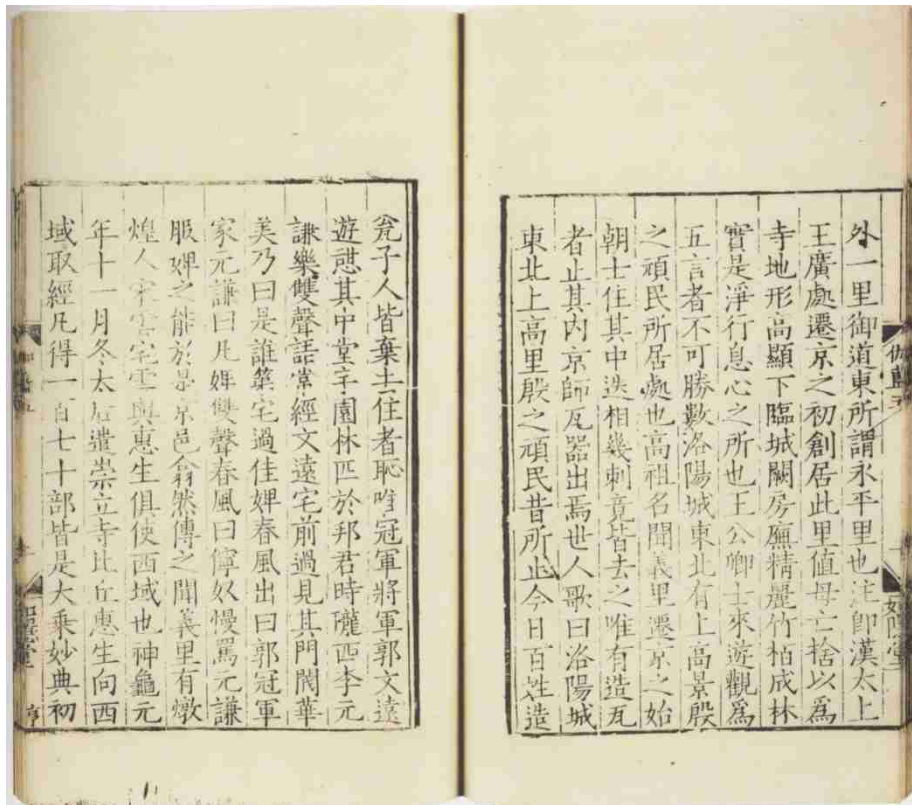 伽藍五
如隱堂
外一里御道東所謂永平里也注卽漢太上
王廣處遷京之初創居此里值母亡捨以爲
寺地形高顯下臨城闕房廡精麗竹栢成林
實是淨行息心之所也王公卿士來遊觀爲
五言者不可勝數洛陽城東北有上高景殷
之頑民所居處也高祖名聞義里遷京之始
朝士住其中迭相幾刺竟皆去之唯有造瓦
者止其內京師瓦器出焉世人歌曰洛陽城
東北上高里殷之頑民昔所止今日百姓造
瓮子人皆棄去住者恥唯冠軍將軍郭文遠
遊憩其中堂宇園林匹於邦君時隴西李元
謙樂雙聲語常經文遠宅前過見其門閥華
美乃曰是誰第宅過佳婢春風出曰郭冠軍
家元謙曰凡婢雙聲春風曰儜奴慢罵元謙
服婢之能於是京邑翕然傳之聞義里有燉
煌人宋雲宅雲與惠生俱使西域也神龜元
年十一月冬太后遣崇立寺比丘惠生向西
域取經凡得一百七十部皆是大乘妙典初